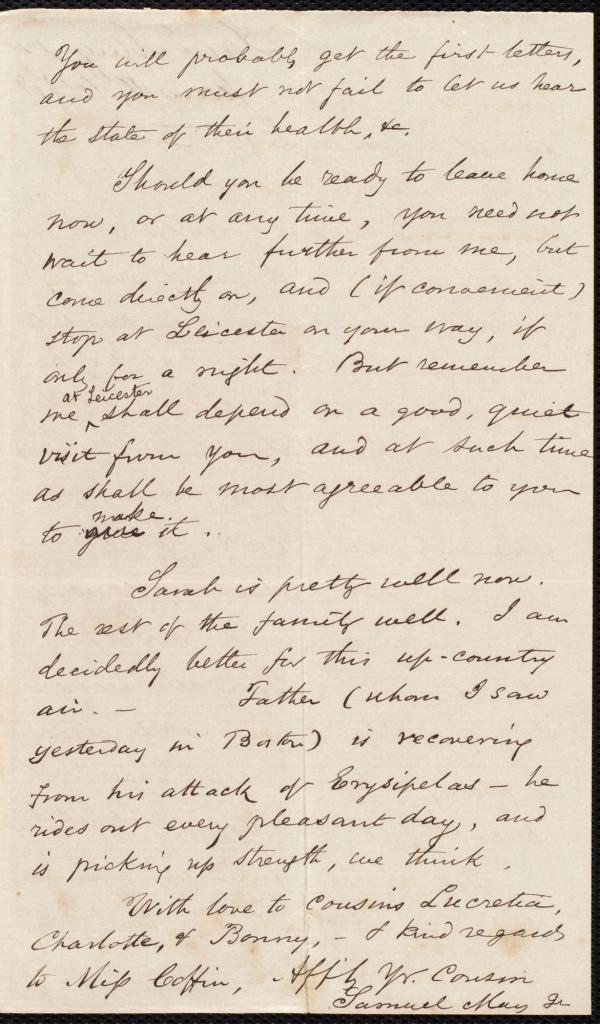 You will probably get the first letters,
and you must not fail to let us hear
the state of their health, &c.
Should you be ready to leave home
now, or at any time, you need not
wait to hear further from me, but
come directly on, and (if convenient)
stop at Leicester on your way, if
only for a night. But remember
at Leicester
we ^ shall depend on a good, quiet
visit from you, and at such time
as shall be most agreeable to you
make.
to give it.
Sarah is pretty well now.
The rest of the family well. I am
decidedly better for this up-country
air. — Father (whom I saw
yesterday in Boston) is recovering
from his attack of Erysipelas – he
rides out every pleasant day, and
is picking up strength, we think.
With love to cousins Lucretia,
Charlotte, & Bonny, – & kind regards
to Miss Coffin, Aff'ly Yr. Cousin
Samuel May Jr